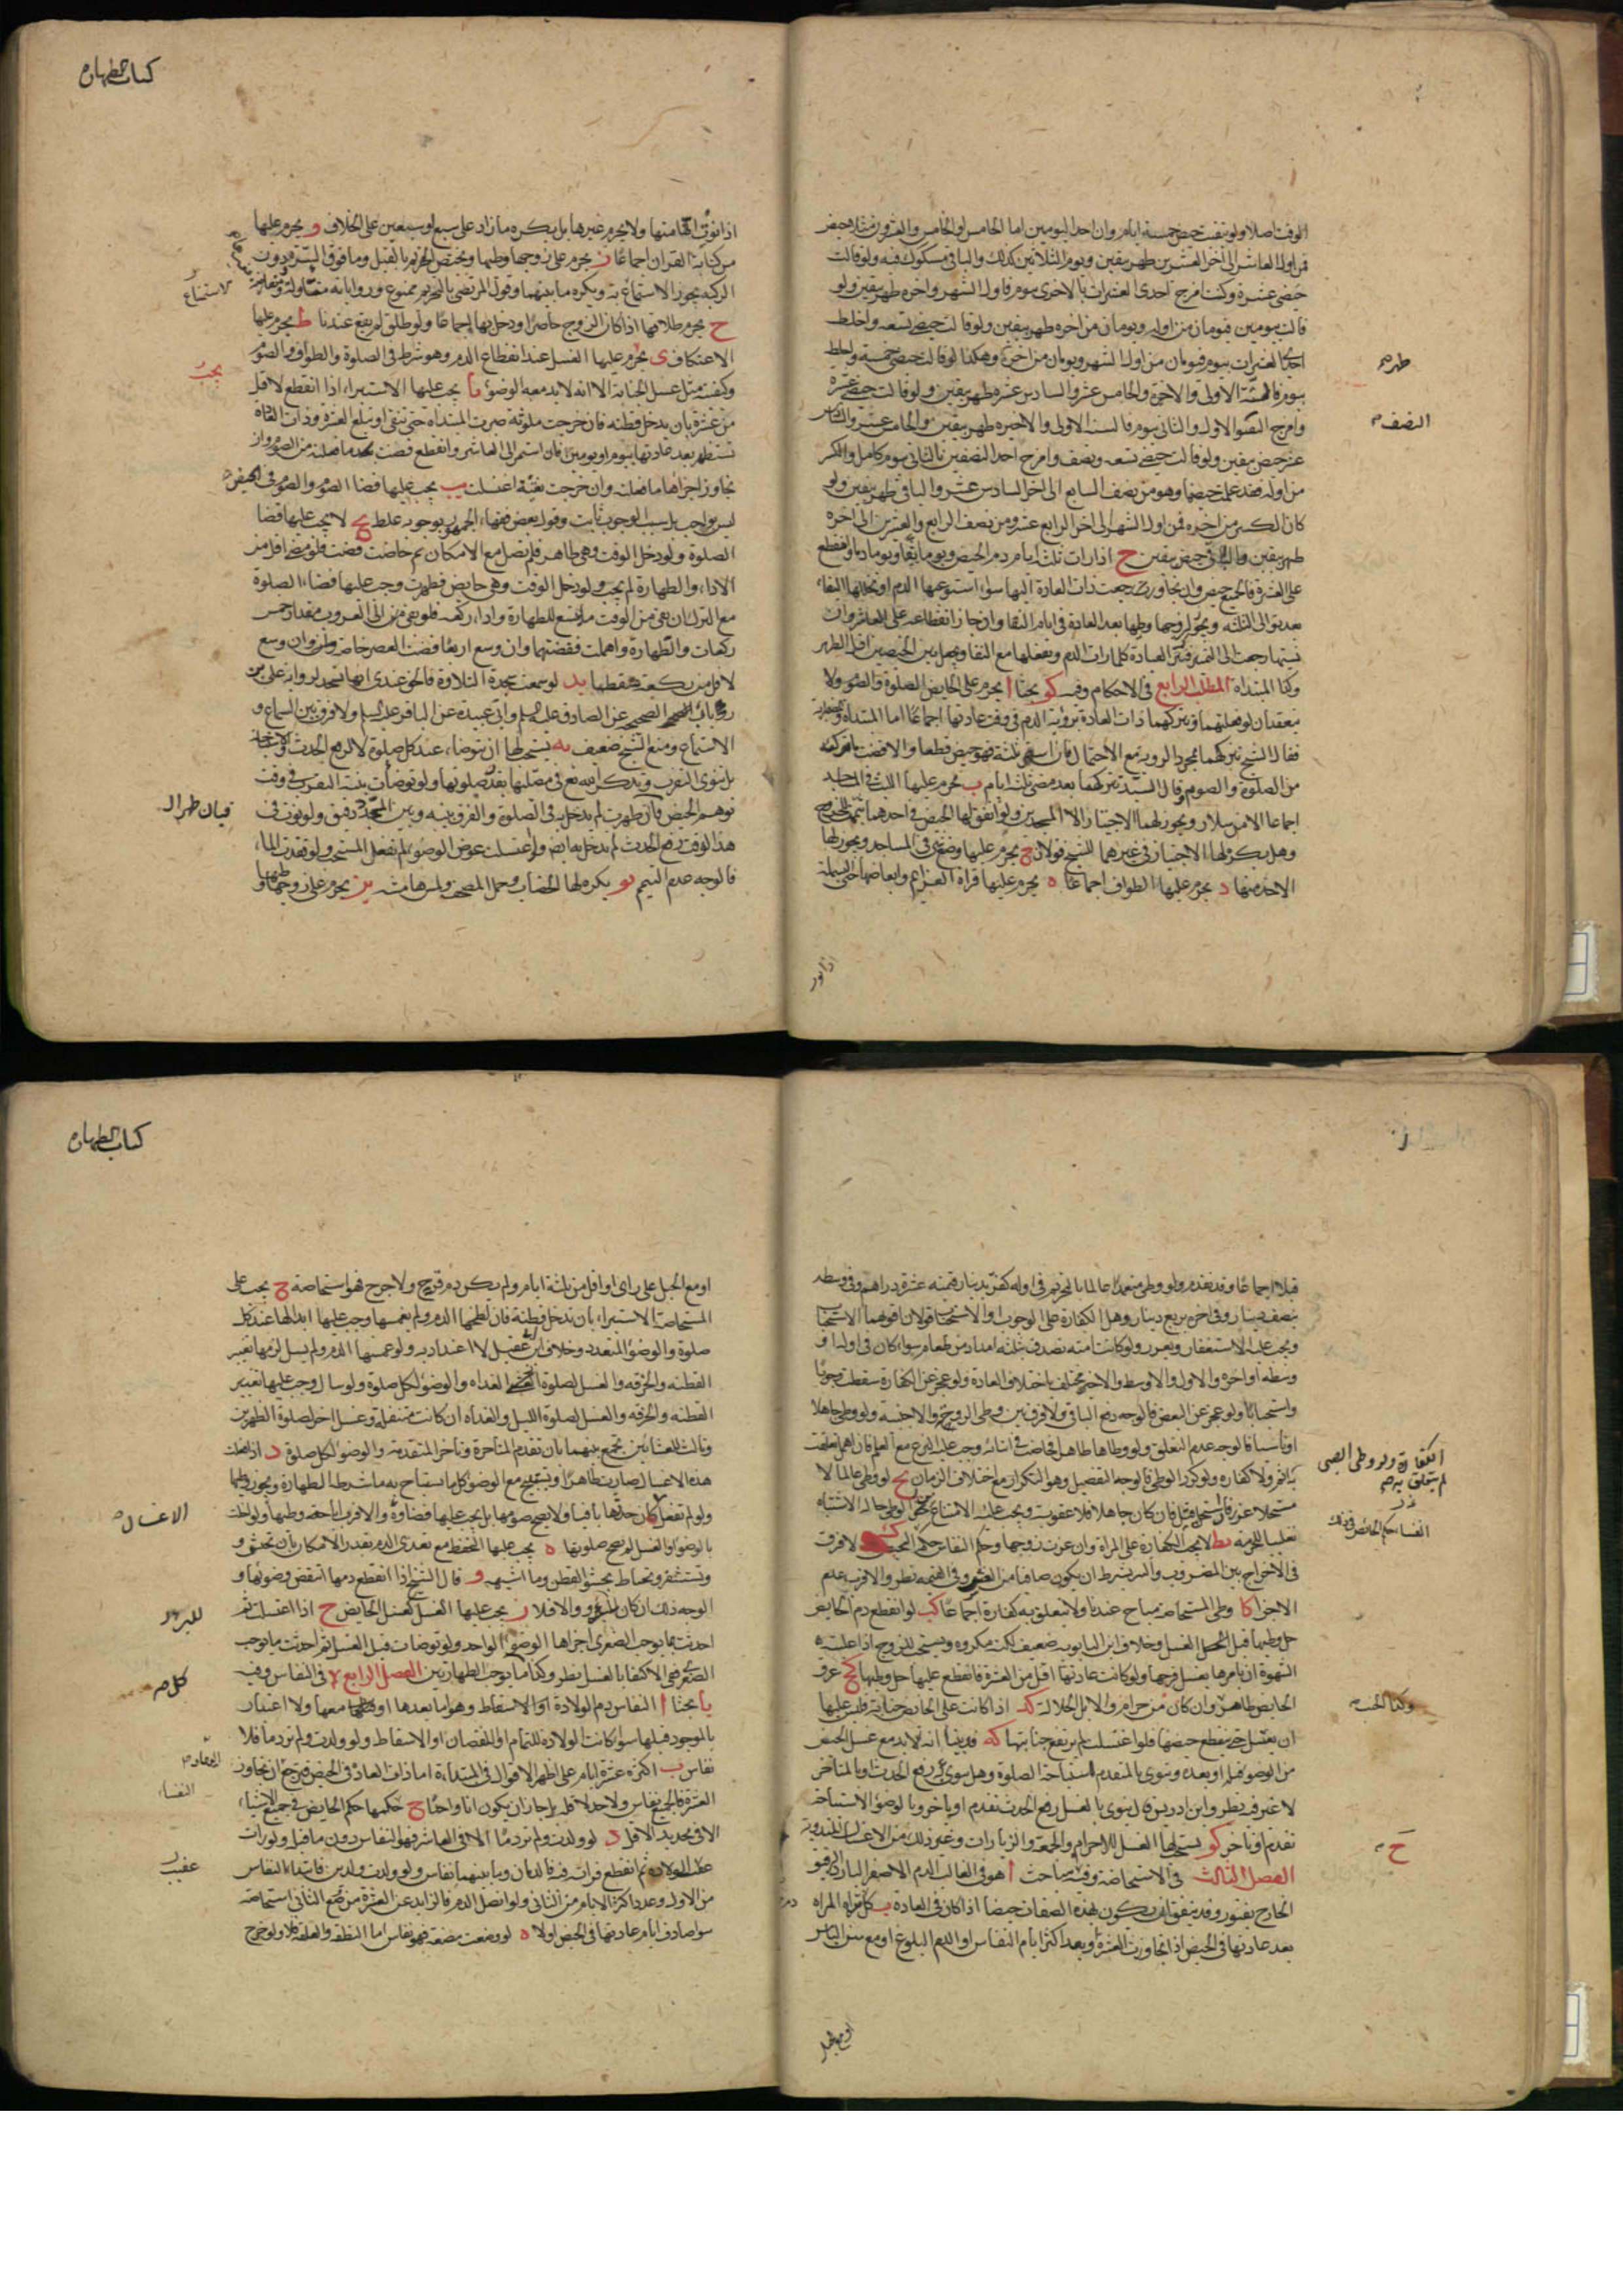 كتاب الطهارة
الوقت اصلا ولو تيقنت حيض خمسة ايام وان احد اليومين اما الخامس او الخامس والعشرون مثلا حيض
فمن اول العاشر الى اخر العشرين طهر بيقين ويوم الثلاثين كذلك والباقي مشكوك فيه ولو قالت
حيضي عشرة وكنت امزج احدى العشرات بالاخرى بيوم فاول الشهر واخره طهر بيقين ولو
قالت بيومين فيومان من اوله ويومان من اخره طهر بيقين ولو قالت حيضي تسعة واخلط
احدى العشرات بيوم فيومان من اول الشهر ويومان من اخره وهكذا لو قالت حيضي خمسة واخلط
بيوم فالستة الاولى والاخيرة والخامس عشر والسادس عشر طهر بيقين ولو قالت حيضي عشرة
وامزج النصف الاول والثاني بيوم فالستة الاولى والاخيرة طهر بيقين والخامس عشر والسادس
عشر حيض بيقين ولو قالت حيضي تسعة ونصف وامزج احد النصفين بالثاني بيوم كامل والكسر
من اوله فقد علمت حيضها وهو من نصف السابع الى اخر السادس عشر والباقي طهر بيقين ولو
كان الكسر من اخره فمن اول الشهر الى اخر الرابع عشر ومن نصف الرابع والعشرين الى اخره
طهر بيقين والباقي حيض بيقين ح اذا رات ثلثة ايام دم الحيض ويوما نقاء ويوما دما وانقطع
على العشرة فالجميع حيض وان تجاوز رجعت ذات العادة اليها سواء استوعبها الدم او تخللها النقاء
وكذا المبتداة المطلب الرابع في الاحكام وفيه كو بحثا ا يحرم على الحايض الصلوة والصوم ولا
ينعقدان لو فعلتهما وتتركهما ذات العادة برؤية الدم في وقت عادتها اجماعا اما المبتداة
فقال الشيخ تتركهما بمجرد الروية مع الاحتمال فان استمر ثلثة فهو حيض قطعا والا قضت ما تركته
من الصلوة والصوم وقال السيد تتركهما بعد مضي ثلثة ايام ب يحرم عليها اللبث في المساجد
اجماعا الا من سلار ويجوز لها الاجتياز الا المسجدين ولو اتفق لها الحيض في احدهما تيممت للخروج
وهل يكره لها الاجتياز في غيرهما للشيخ قولان ج يحرم عليها وضع شيء في المساجد ويجوز لها
الاخذ منها د يحرم عليها الطواف اجماعا ه يحرم عليها قراءة العزايم وابعاضها حتى البسملة
طهر م
النصف م
اذا نوت
اذا نوت انها منها ولا يحرم غيرها بل يكره ما زاد على سبع او سبعين على الخلاف و يحرم عليها
مس كتابة القران اجماعا ز يحرم على زوجها وطيها ويختص التحريم بالقبل وما فوق السرة ودون
الركبة يجوز الاستمتاع به ويكره ما بينهما وقول المرتضى بالتحريم ممنوع ورواياته متاولة
ح يحرم طلاقها اذا كان الزوج حاضرا ودخل بها اجماعا ولو طلق لم يقع عندنا ط يحرم عليها
الاعتكاف ى يحرم عليها الغسل عند انقطاع الدم وهو شرط في الصلوة والطواف والصوم
وكيفيته مثل غسل الجنابة الا انه لا بد معه الوضوء يا يجب عليها الاستبراء اذا انقطع لاقل
من عشرة بان تدخل قطنة فان خرجت ملوثة صبرت المبتداة حتى تنقى او تبلغ العشرة وذات العادة
تستظهر بعد عادتها بيوم او يومين فان استمر الى العاشر وانقطع قضت ما فعلته من الصوم وان
تجاوز اجزاها ما فعلته وان خرجت نقية اغتسلت يب يجب عليها قضاء الصوم والصوم في الحيض
ليس بواجب بل سبب الوجوب ثابت وقول بعض فقهاء الجمهور بوجوبه غلط يج لا يجب عليها قضاء
الصلوة ولو دخل الوقت وهي طاهر فلم تصل مع الامكان ثم حاضت قضت فلو مضى اقل من
الاداء والطهارة لم يجب ولو دخل الوقت وهي حايض فطهرت وجب عليها قضاء الصلوة
مع الترك ان بقي من الوقت ما يسع للطهارة واداء ركعة فلو بقي من الى الغروب مقدار خمس
ركعات والطهارة واهملت فقضتهما وان وسع اربعا قضت العصر خاصة ولو وسع
لاقل من ركعة سقطتا يد لو سمعت سجدة التلاوة فالحق عندي انها تسجد لرواية علي بن
رئاب الصحيح عن الصادق عليه السلم وابي عبيدة عن الباقر عليه السلم ولا فرق بين السماع و
الاستماع ومنع الشيخ ضعيف يه يستحب لها ان تتوضاء عند كل صلوة لا لرفع الحدث والاستباحة
بل تنوي التقرب وتذكر الله تع في مصلاها بقدر صلوتها ولو توضات بنية التقرب في وقت
توهم الحيض فبان طهرت لم تدخل به في الصلوة والفرق بينه وبين المجدد دقيق ولو نوت في
هذا الوقت رفع الحدث لم تدخل به ايضا ولو اغتسلت عوض الوضوء لم تفعل المستحب ولو فقدت الماء
فالوجه عدم التيمم يو يكره لها الخضاب وحمل المصحف ولمس هامشه يز يحرم على زوجها وطيها
الاستمتاع
يجب
فبان طهر ال
كتاب الطهارة
قبلا اجماعا وقد تقدم ولو وطي متعمدا عالما بالتحريم في اوله كفر بدينار قيمته عشرة دراهم وفي وسطه
بنصف دينار وفي اخره بربع دينار وهل الكفارة على الوجوب او الاستحباب قولان اقواهما الاستحباب
ويجب عليه الاستغفار ويعزر ولو كانت امته تصدق بثلثة امداد من طعام سواء كان في اوله او
وسطه او اخره والاول والاوسط والاخير مختلف باختلاف العادة ولو عجز عن الكفارة سقطت وجوبا
واستحبابا ولو عجز عن البعض فالوجه دفع الباقي ولا فرق بين وطي الزوجة والاجنبية ولو وطي جاهلا
او ناسيا فالوجه عدم التعلق ولو وطاها طاهرا فحاضت في اثنائه وجب عليه النزع مع العلم فان اهمل تعلقت
به اثم ولا كفارة ولو كرر الوطي فالوجه التفصيل وهو التكرار مع اختلاف الزمان يح لو وطي عالما لا
مستحلا عزر فان استحل قتل فان كان جاهلا فلا عقوبة ويجب عليه الامتناع من الوطي حالة الاشتباه
تغليبا للحرمة يط لا تجب الكفارة على المراة وان غرت زوجها وحكم النفاس حكم الحيض ك لا فرق
في الاخراج بين المضروب والتبر بشرط ان يكون صافيا من الغش وفي القيمة نظر والاقرب عدم
الاجزاء كا وطي المستحاضة مباح عندنا ولا يتعلق به كفارة اجماعا كب لو انقطع دم الحايض
حل وطيها قبل الغسل وخلاف ابن بابويه ضعيف لكنه مكروه ويستحب للزوج اذا غلبته
الشهوة ان يامرها بغسل فرجها ولو كانت عادتها اقل من العشرة فانقطع عليها حل وطيها كج عرق
الحايض طاهر وان كان من حرام والابل الجلالة كد اذا كانت على الحايض جنابة فليس عليها
ان تغتسل حتى ينقطع حيضها فلو اغتسلت لم يرتفع جنابتها كه قد بينا انه لا بد مع غسل الحيض
من الوضوء قبله او بعده وتنوي بالمتقدم استباحة الصلوة وهل تنوي رفع الحدث او بالمتاخر
لا غير فيه نظر وابن ادريس قال تنوي بالغسل رفع الحدث تقدم او تاخر وبالوضوء الاستباحة
تقدم او تاخر كو يستحب لها الغسل للاحرام والجمعة والزيارات وغير ذلك من الاغسال المندوبة
الفصل الثالث في الاستحاضة وفيه مباحث ا هو في الغالب الدم الاصفر البارد الرقيق
الخارج بفتور وقد يتفق ان يكون بهذه الصفات حيضا اذا كان في العادة ب كل ما تراه المراة
بعد عادتها في الحيض اذا تجاوزت العشرة وبعد اكثر ايام النفاس او الدم قبل البلوغ او مع سن الياس
الكفارة ولو وطي الصبي
لم يتعلق به م
وكذا الجنب م
ح م
او مع الحبل
او مع الحبل على راى او اقل من ثلثة ايام ولم يكن دم قرح ولا جرح فهو استحاضة ج يجب على
المستحاضة الاستبراء بان تدخل قطنة فان لطخها الدم ولم يغمسها وجب عليها ابدالها عند كل
صلوة والوضوء المتعدد وخلاف ابن عقيل لا اعتداد به ولو غمسها الدم ولم يسل لزمها تغيير
القطنة والخرقة والغسل لصلوة الغداة والوضوء لكل صلوة ولو سال وجب عليها تغيير
القطنة والخرقة والغسل لصلوة الليل والغداة ان كانت متنفلة وغسل اخر لصلوة الظهرين
وثالث للعشائين تجمع بينهما بان تقدم المتاخرة وتاخر المتقدمة والوضوء لكل صلوة د اذا فعلت
هذه الاغسال صارت طاهرا وتستبيح مع الوضوء كل ما يستباح به ما شرطه الطهارة ويجوز وطيها
ولو لم تفعل كان حدثها باقيا ولا يصح صومها بل يجب عليها قضاؤه والاقرب اباحة وطيها ولو اخلت
بالوضوء او الغسل لم تصح صلوتها ه يجب عليها التحفظ مع تعدي الدم بقدر الامكان بان تحتشي و
وتستثفر وتحتاط بحشو القطن وما اشبهه و قال الشيخ اذا انقطع دمها انتقض وضوئها و
الوجه ذلك ان كان للبرؤ والا فلا ز يجب عليها الغسل كغسل الحايض ح اذا اغتسلت ثم
احدثت بما يوجب الصغرى اجزاها الوضوء الواحد ولو توضات قبل الغسل ثم احدثت ما يوجب
الصغرى ففي الاكتفاء بالغسل نظر وكذا ما يوجب الطهارتين الفصل الرابع في النفاس وفيه
يا بحثا ا النفاس دم الولادة او الاسقاط وهو ما بعدها او معها ولا اعتبار
بالموجود قبلها سواء كانت الولادة للتمام او النقصان او الاسقاط ولو ولدت ولم تر دما فلا
نفاس ب اكثره عشرة ايام على اظهر الاقوال في المبتداة اما ذات العادة في الحيض فترجع ان تجاوز
العشرة فالجميع نفاس ولا حد لاقله بل جاز ان يكون انا واحدا ج حكمها حكم الحايض في جميع الاشياء
الا في تحديد الاقل د لو ولدت ولم تر دما الا في العاشر فهو النفاس دون ما قبله ولو رات
عقيب الولادة ثم انقطع فراته فيه فالدمان وما بينهما نفاس ولو ولدت ولدين فابتداء النفاس
من الاول وعدد اكثر الايام من الثاني ولو اتصل الدم فالزايد عن العشرة من وضع الثاني استحاضة
سواء صادف ايام عادتها في الحيض او لا ه لو وضعت مضغة فهو نفاس اما النطفة والعلقة فلا ولو خرج
الاغسال م
للبرؤ
كل م
النفساء
عقيب